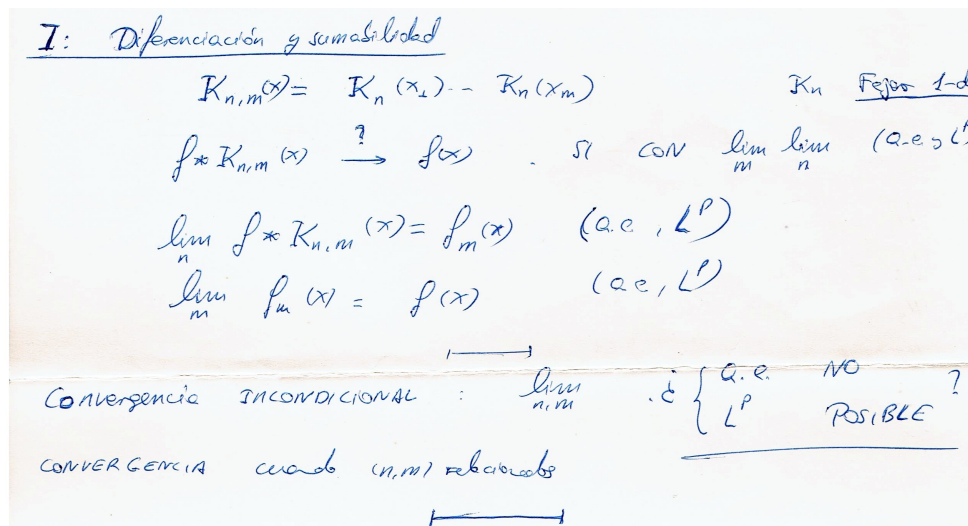 I: Diferenciación y sumabilidad
K_{n,m}(x) = K_n(x_1) -- K_n(x_m) K_n Fejer 1-d
f * K_{n,m}(x) \xrightarrow{?} f(x) . SI CON lim_m lim_n (a.e, L^p
lim_n f * K_{n,m}(x) = f_m(x) (a.e, L^p)
lim_m f_m(x) = f(x) (a.e, L^p)
CONVERGENCIA INCONDICIONAL : lim_{n,m} . ¿ { a.e. NO
L^p POSIBLE ?
CONVERGENCIA cuando (n,m) relacionados